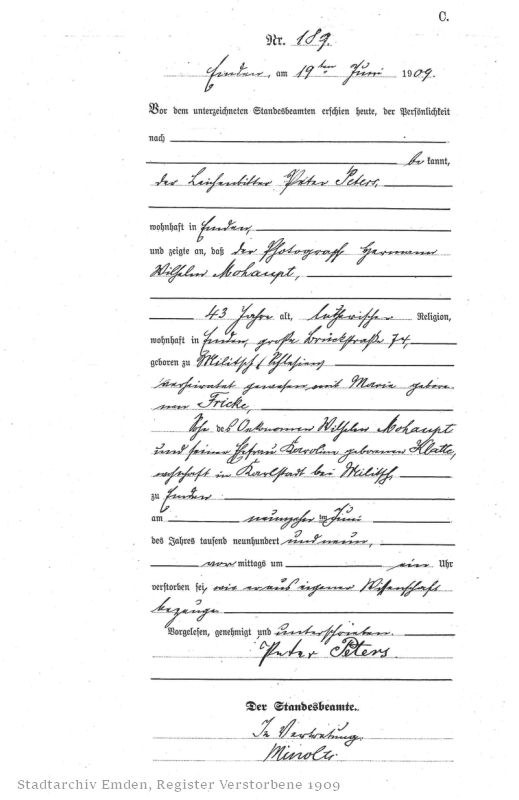 C.
Nr. 189.
Emden, am 19ten Juni 1909.
Vor dem unterzeichneten Standesbeamten erschien heute, der Persönlichkeit
nach
be kannt,
der Leichenbitter Peter Peters,
wohnhaft in Emden,
und zeigte an, daß der Photograph Hermann
Wilhelm Mohaupt,
43 Jahre alt, lutherischer Religion,
wohnhaft in Emden, große Brückstraße 74,
geboren zu Militsch, Schlesien,
verheiratet gewesen mit Maria gebore-
nen Fricke,
Sohn des Oekonomen Wilhelm Mohaupt
und seiner Ehefrau Karoline geborenen Klatte,
wohnhaft in Karlstadt bei Militsch,
zu Emden
am neunzehnten Juni
des Jahres tausend neunhundert und neun,
vor mittags um ein Uhr
verstorben sei, wie er aus eigener Wissenschaft
bezeuge.
Vorgelesen, genehmigt und unterschrieben.
Peter Peters.
Der Standesbeamte.
In Vertretung.
Stadtarchiv Emden, Register Verstorbene 1909